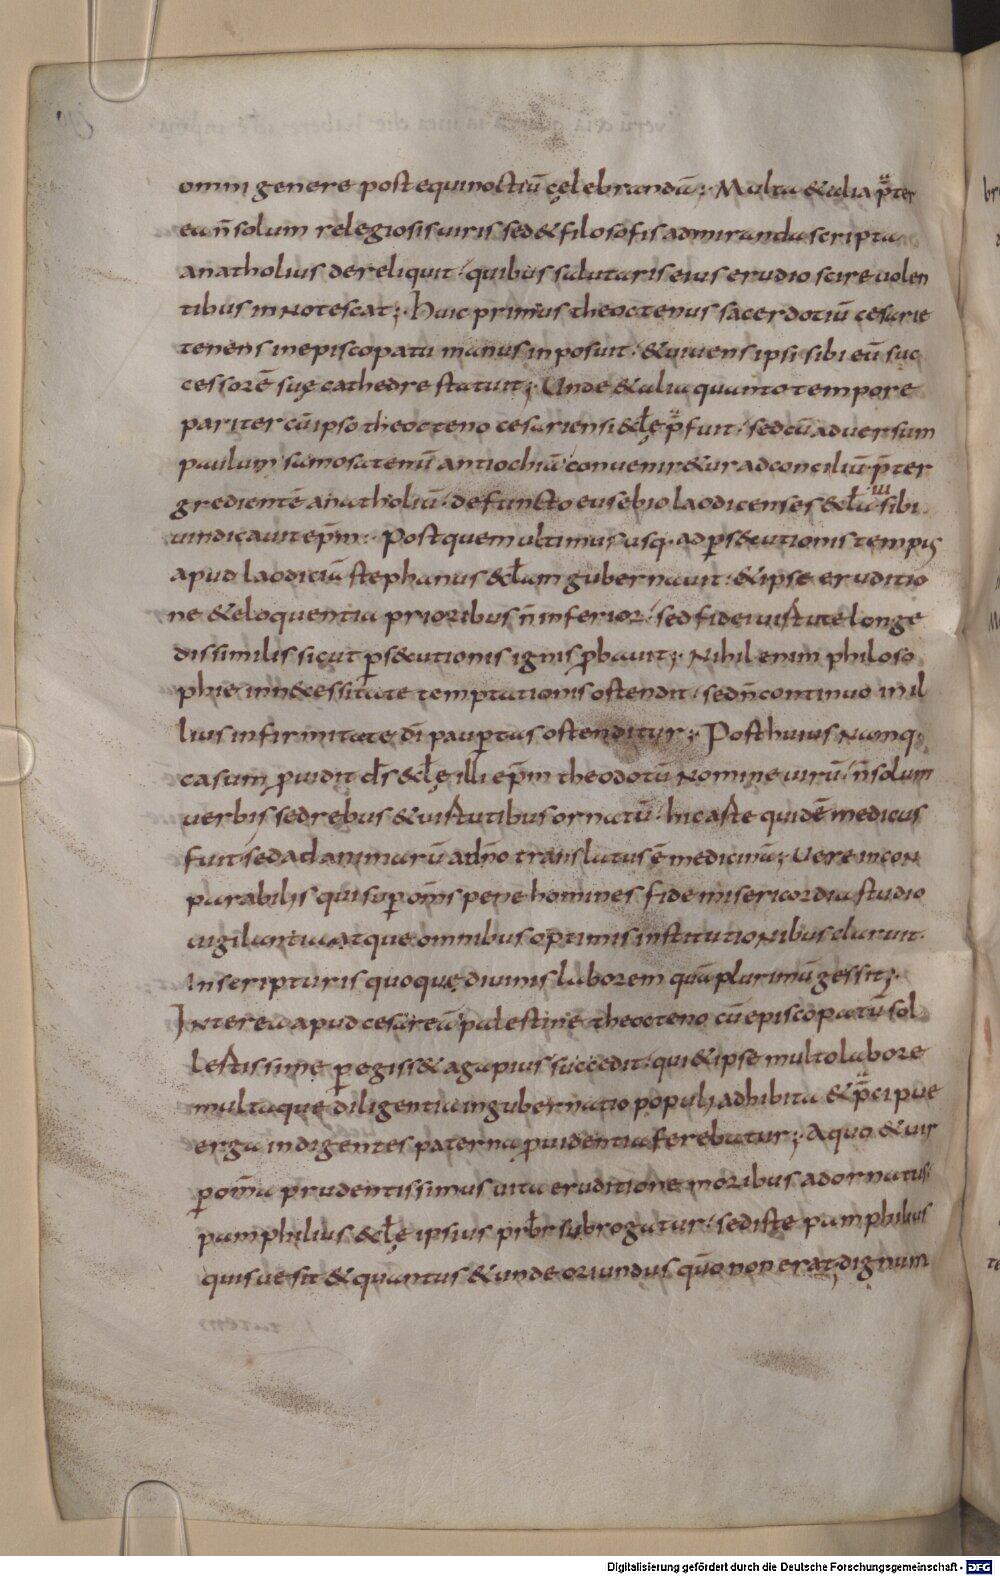 omni genere post equinoctiū çelebrandū;· Multa & alia p̄ter
ea n̄ solum relegiosis uiris sed & filosofis admiranda scripta
anatholius dereliquit· quibus salutaris eius erudio scire uolen
tibus innotescat;· Huic primus theoctenus sacerdotiū cesarie
tenens inepiscopatu manus inposuit· & uiuens ipsi sibi eū suc
cessorē suę cathedre statuit;· Unde & alia quanto tempore
pariter cū ipso theocteno cesariensi & cl̄ę p̄fuit· sed cū aduersum
paulum samosatenū antiochiā conuenir&ur ad conciliū p̄ter
gredientē anatholiū· defuncto eusebio laodicenses &cl̄ia sibi
uindicauit ep̄m;· Post quem ultimus usq· ad p̱s&cutionis tempus
apud laoditiā stephanus &cl̄am gubernauit· & ipse eruditio
ne & eloquentia prioribus n̄ inferior· sed fidei uirtute longe
dissimilis sicut p̱s&cutionis ignis p̱bauit;· Nihil enim philoso
phie inn&cessitate temptationis ostendit· sed n̄ continuo in il
lius infirmitate dī paup̱tas ostenditur;· Post huius namq·
casum p̱uidit d̄s &cl̄ę illi ep̄m theodotū nomine uirū· n̄ solum
uerbis sed rebus & uirtutibus ornatū· hic arte quidē medicus
fuit sed ad animarū ad n̄o translatus ē medicinā;· Uere incon
parabilis qui sup̱ om̄s pene homines fide misericordia studio
uigilantia atque omnibus optimis institutionibus claruit·
In scripturis quoque diuinis laborem quā plurimū gessit;·
Interea apud cesareā palestine theocteno cū episcopatū sol
lertissime p̱egiss& agapius succedit· qui & ipse multo labore
multaque diligentia ingubernatio populi adhibita & p̄cipue
erga indigentes paterna p̱uidentia ferebatur;· A quo & uir
p̱ om̄a prudentissimus uita eruditione moribus adornatus·
pamphilius &cl̄ę ipsius prb̄r subrogatur· sed iste pamphilius
quisue sit & quantus & unde oriundus quō non erat dignum
Digitalisierung gefördert durch die Deutsche Forschungsgemeinschaft - DFG